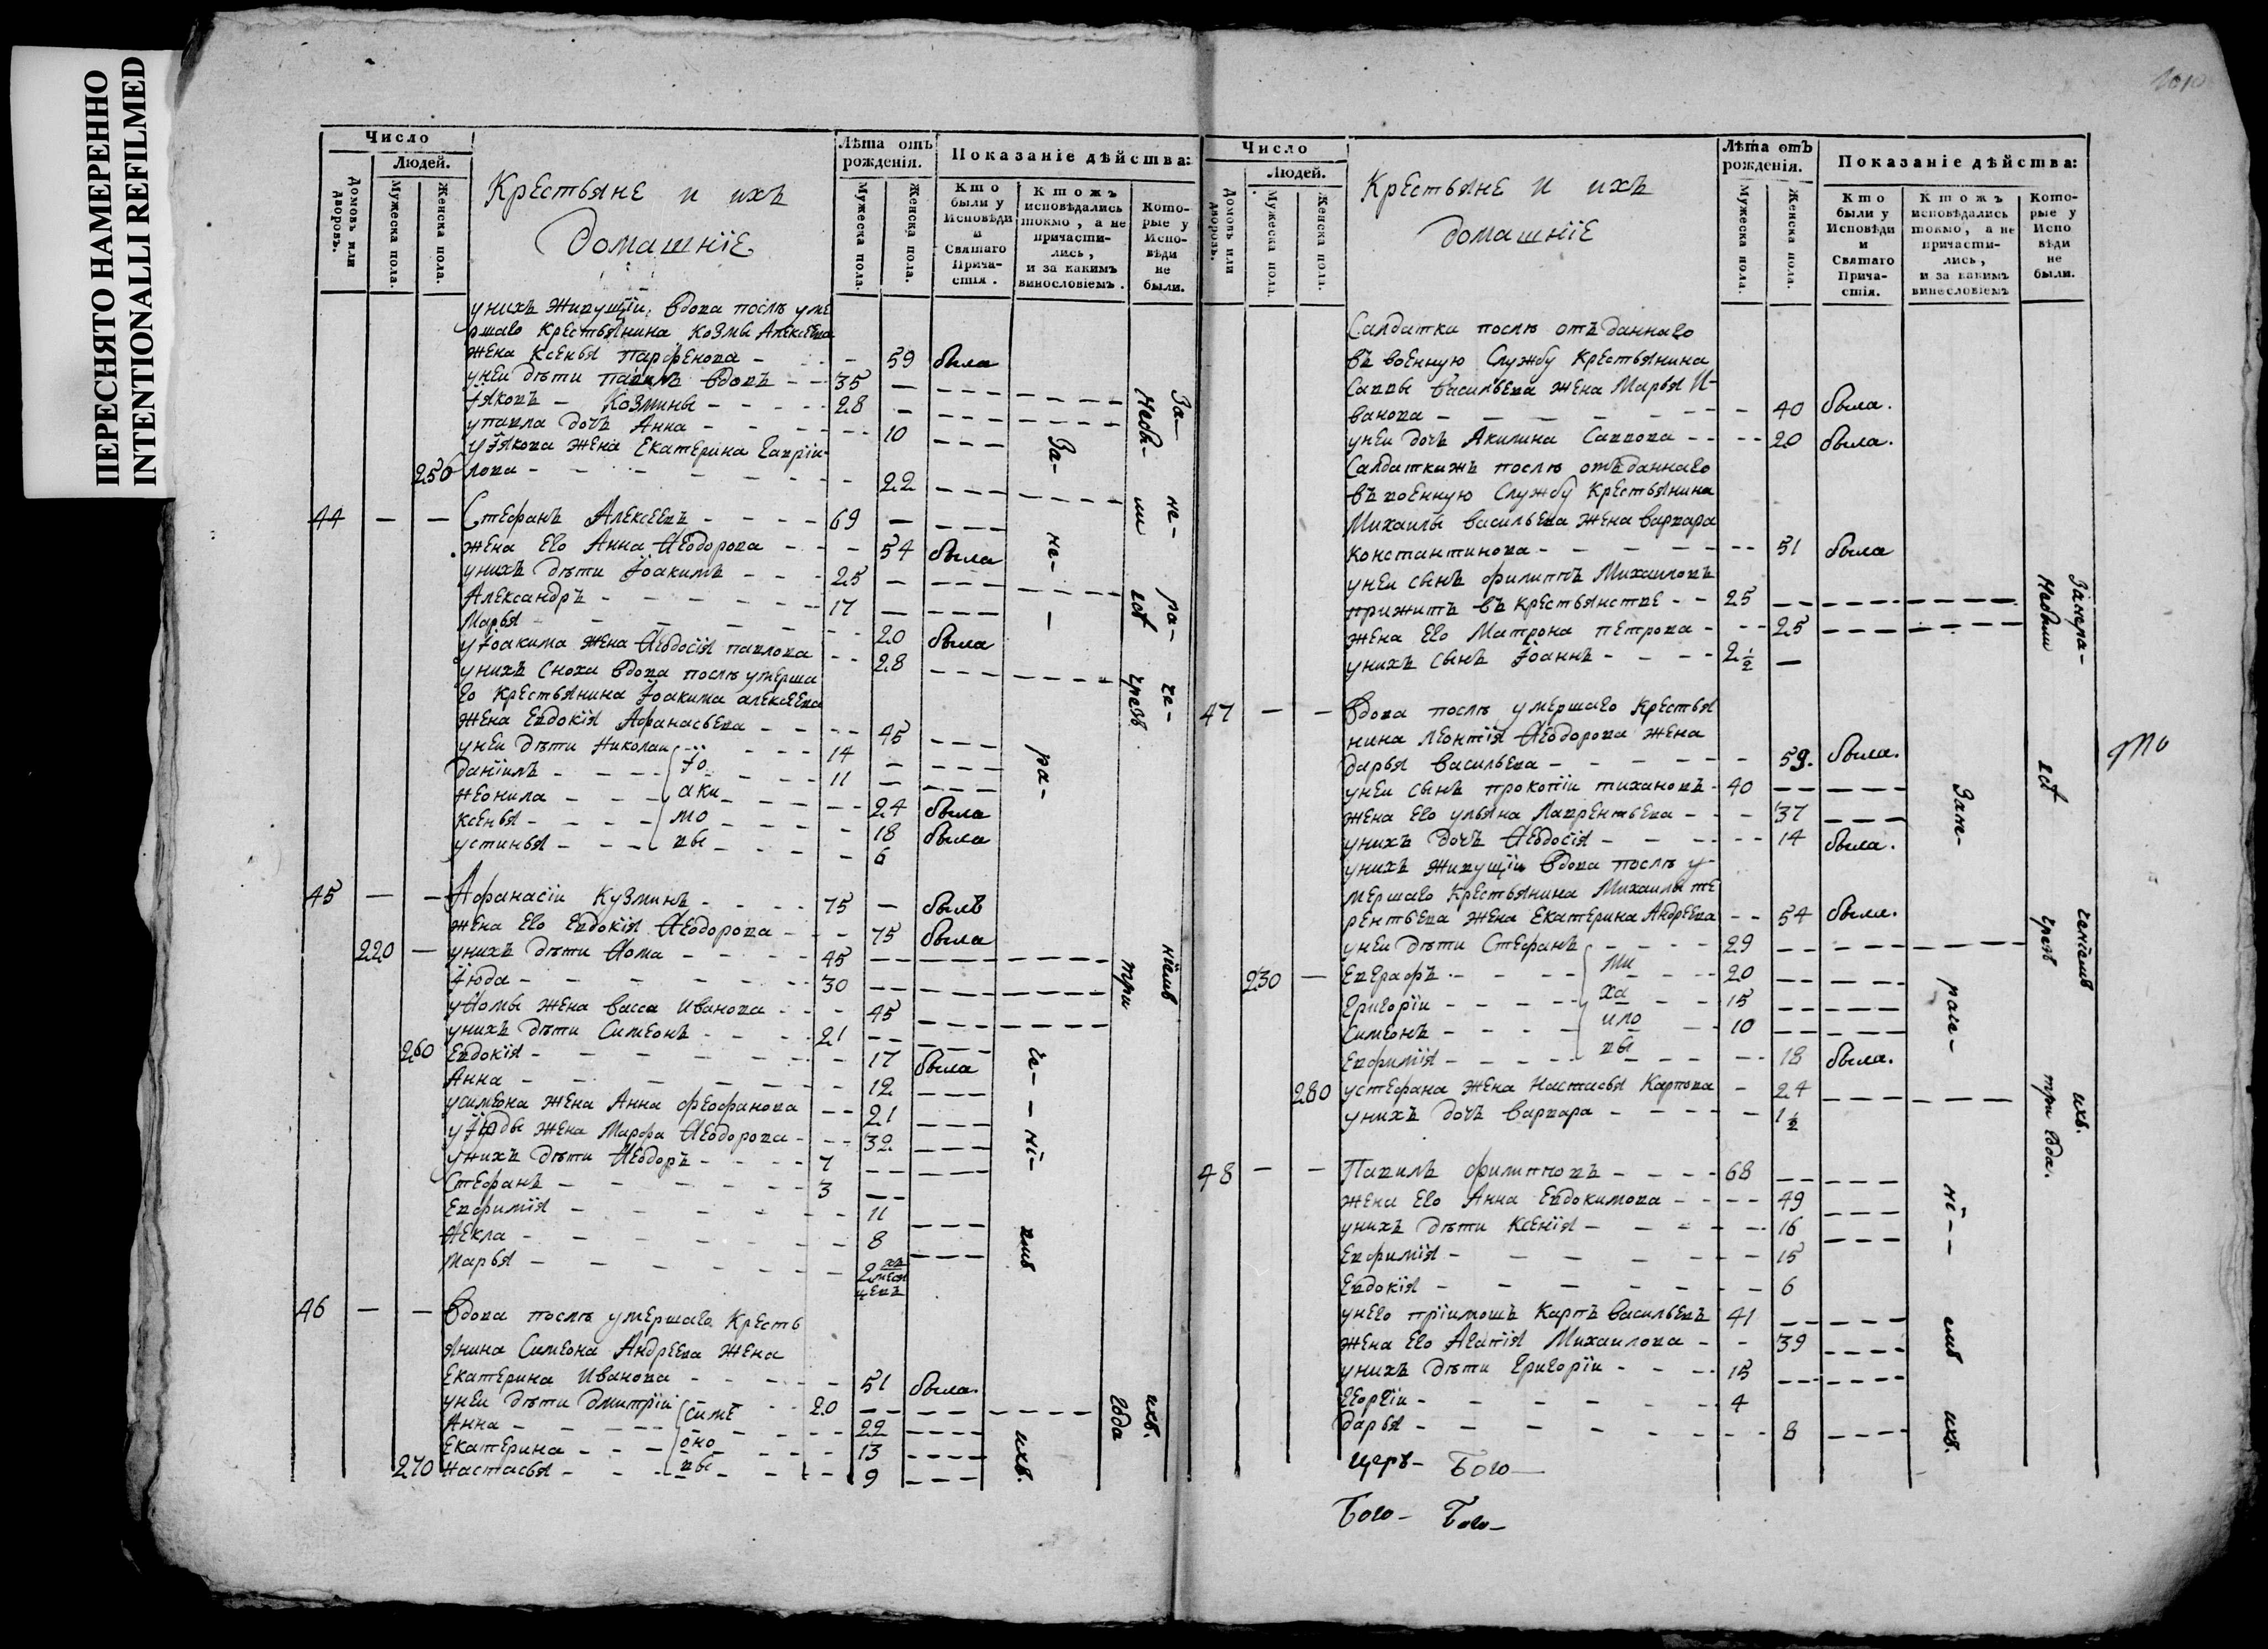 ПЕРЕСНЯТО НАМЕРЕННО
INTENTIONALLI REFILMED
1010
Число
Людей.
Домовъ или дворовъ.
Мужеска пола.
Женска пола.
Крестьяне и ихъ
домашніе
Лѣта отъ рожденія.
Мужеска пола.
Женска пола.
Показаніе дѣйства:
Кто были у Исповѣди и Святаго Прича-стія.
Ктожъ исповѣдались токмо, а не причасти-лись, и за какимъ винословіемъ.
Кото-рые у Испо-вѣди не были.
унихъ живущїи, вдова послѣ уме
ршаго крестьянина Козмы Алексеева
жена Ксенья Парфенова - - 59 была
унеи дѣти Павилъ вдовъ - - 35 -
Іяковъ - Козмины - - 28 -
упавла дочь Анна - - 10
уІякова жена Екатерина Гаврїи-
250 лова - - 22
44 - - Стефанъ Алексеевъ - - 69 -
жена его Анна Ѳеодорова - - 54 была
унихъ дѣти Іоакимъ - - 25 -
Александръ - - 17 -
Марья - - 20 была
уІоакима жена Ѳеодосїя павлова - - 28
унихъ сноха вдова послѣ умерша
го крестьянина Іоакима алексеева
жена Евдокїя Афанасьева - - 45
унеи дѣти Николаи - - 14
данїилъ - - Іо - - 11 -
Неонила - - аки - - 24 была
ксенья - - мо - - 18 была
устинья - - вы - - 6
45 - - Афанасїи Кузминъ - - 75 - былъ
жена его Евдокїя Ѳеодорова - - 75 была
220 - унихъ дѣти Ѳома - - 45
Іюда - - 30
уѲомы жена васса Иванова - - 45
унихъ дѣти Симеонъ - - 21
260 Евдокїя - - 17 была
Анна - - 12
усимеона жена Анна феофанова - - 21
уІюды жена Марфа Ѳеодорова - - 32
унихъ дѣти Ѳеодоръ - - 7
Стефанъ - - 3
Евфимїя - - 11
Ѳекла - - 8
Марья - - 2 хъ месяцевъ
46 - - Вдова послѣ умершаго Кресть
янина Симеона Андреева жена
Екатерина Иванова - - 51 была.
унеи дѣти Дмитрїи - симе - 20
Анна - - 22
Екатерина - - оно - - 13
270 Настасья - - вы - - 9
За- не- ра- че- ніемъ ихъ.
Небы- ли ей чрезъ три года
За- не- ра- че- ні- емъ ихъ.
Число
Людей.
Домовъ или дворовъ.
Мужеска пола.
Женска пола.
Крестьяне и ихъ
домашніе
Лѣта отъ рожденія.
Мужеска пола.
Женска пола.
Показаніе дѣйства:
Кто были у Исповѣди и Святаго Прича-стія.
Ктожъ исповѣдались токмо, а не причасти-лись, и за какимъ винословіемъ
Кото-рые у Испо вѣди не были.
Салдатка послѣ отъданнаго
въ военную службу крестьянина
Саввы васильева жена Марья И-
ванова - - 40 была.
унеи дочь Акилина Саввова - - 20 была.
Салдаткажъ послѣ отъданнаго
въ военную службу крестьянина
Михаилы васильева жена варвара
константинова - - 51 была
унеи сынъ филиппъ Михаиловъ
прижитъ въ крестьянстве - - 25
жена его Матрона петрова - - 25
унихъ сынъ Іоаннъ - - 2 1/2 -
47 - - Вдова послѣ умершаго крестья
нина леонтїя Ѳеодорова жена
дарья васильева - - 59. была.
унеи сынъ прокопїи тихановъ - 40
жена его ульяна Лаврентьева - - 37
унихъ дочь Ѳеодосїя - - 14 была.
унихъ живущїи вдова послѣ у-
мершаго крестьянина Михаилы те
рентьева жена Екатерина Андреева - - 54 была.
унеи дѣти Стефанъ - - 29
230 - Евграфъ - - Ми - - 20
Григорїи - - ха - - 15
Симеонъ - - ило - - 10
Евфимїя - - вы - - 18 была.
280 устефана жена Настасья Карпова - 24
унихъ дочь варвара - - 1 1/2
48 - - Павилъ филипповъ - - 68
жена его Анна Евдокимова - - 49
унихъ дѣти Ксенїя - - 16
Евфимїя - - 15
Евдокїя - - 6
унего прїимошъ Карпъ васильевъ 41
жена его Агапїя Михаилова - - 39
унихъ дѣти Григорїи - - 15
Георгїи - - 4
дарья - - 8
церъ- Бого-
Бого- Бого-
Занера- ченіемъ ихъ.
Небыли ей чрезъ три года.
Зане- раче- ні- емъ ихъ.